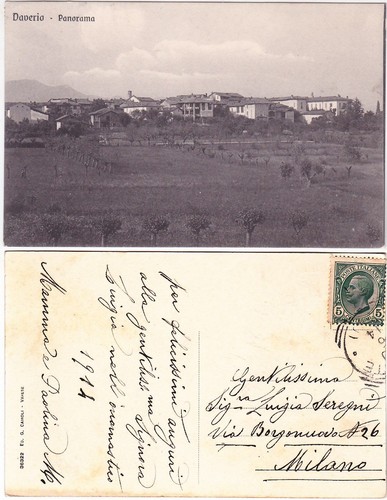 Daverio - Panorama
per felicissimi auguri
alla gentilis.ma Signora
Luigia nell'onomastico
1914
Mamma e Paolina M.
36392 Ed. G. Canoli - Varese
POSTE ITALIANE
5 5
Gentilissima
Sig.ra Luigia Seregni
Via Borgonuovo N 26
Milano